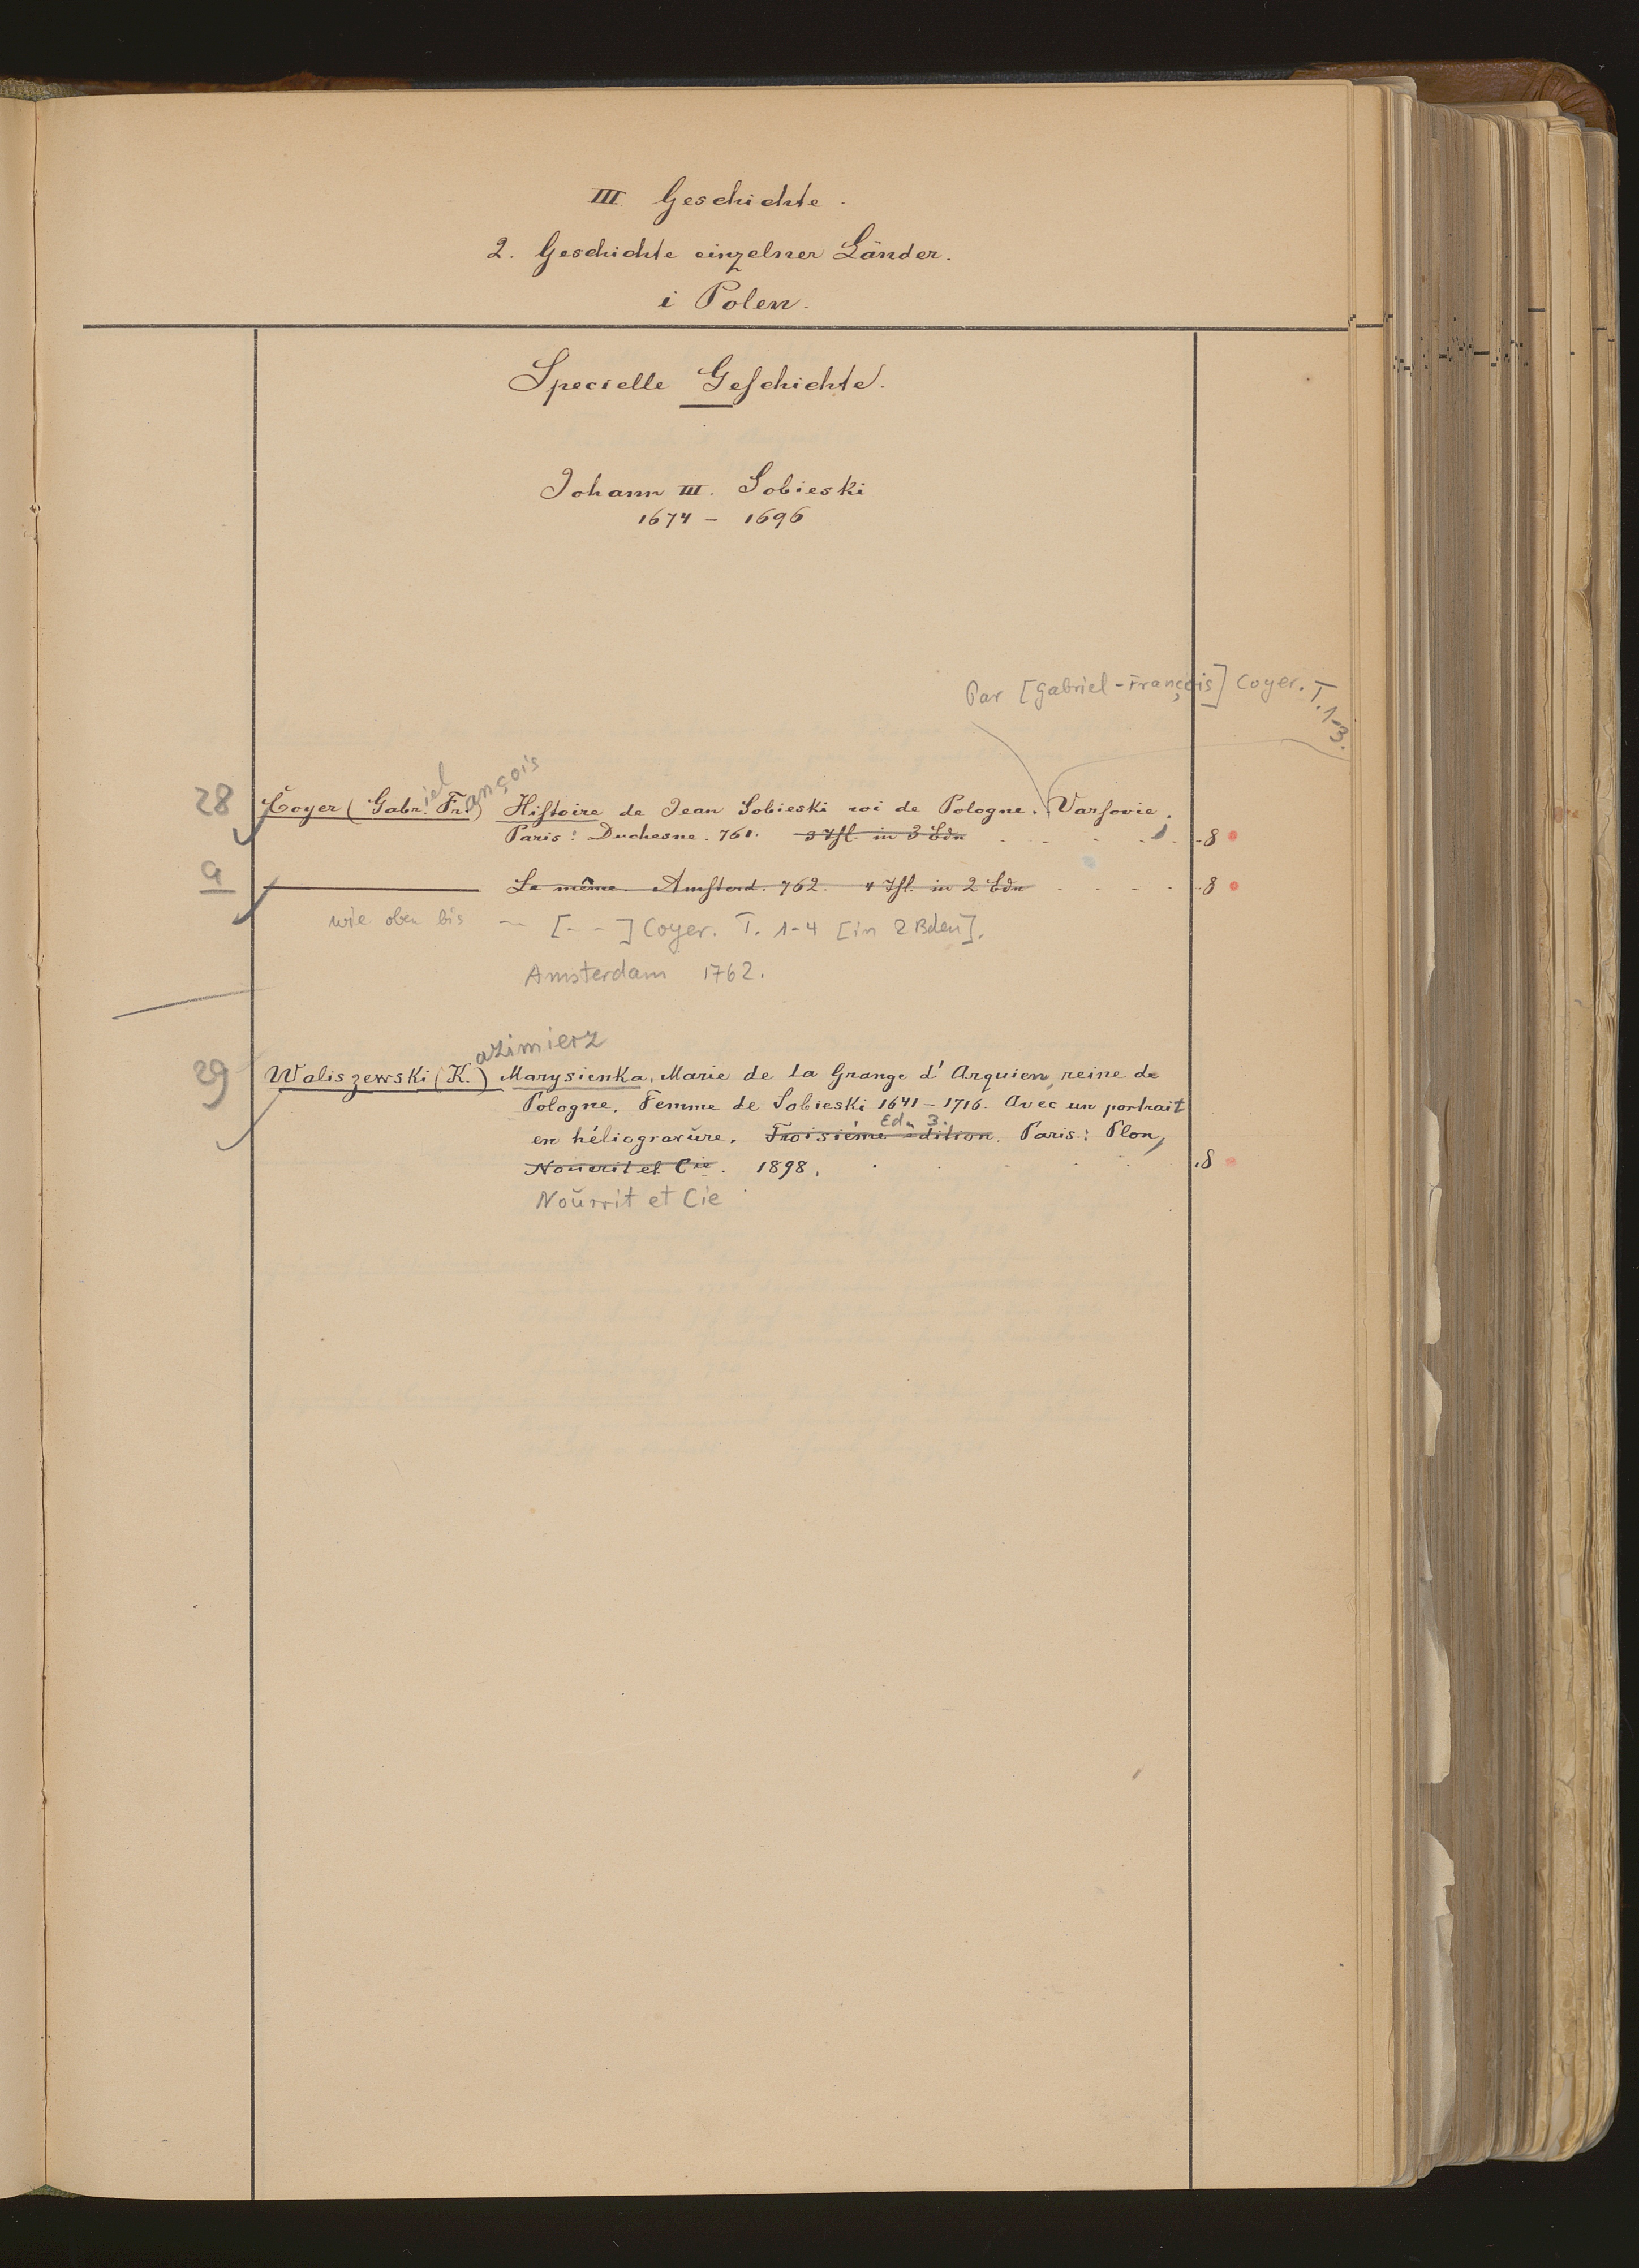 III. Geschichte.
2. Geschichte einzelner Länder.
i Polen.
Specielle Geschichte.
Johann III. Sobieski
1674 - 1696
Par [Gabriel-François] Coyer. T. 1-3.
iel ançois
28 Coyer (Gabr. Fr.) Histoire de Jean Sobieski roi de Pologne. Varsovie,
Paris: Duchesne. 761. 3 Thl. in 3 Bdn . . . . . 8
a Le même. Amsterd. 762. 4 Thl. in 2 Bdn . . . . 8
wie oben bis — [- -] Coyer. T. 1-4 [in 2 Bden].
Amsterdam 1762.
azimierz
29 Waliszewski (K.) Marysienka, Marie de La Grange d'Arquien, reine de
Pologne. Femme de Sobieski 1641-1716. Avec un portrait
Edn 3.
en héliogravŭre. Troisième edition. Paris: Plon,
Nouerit et Cie. 1898. . . . . . 8
Noŭrrit et Cie